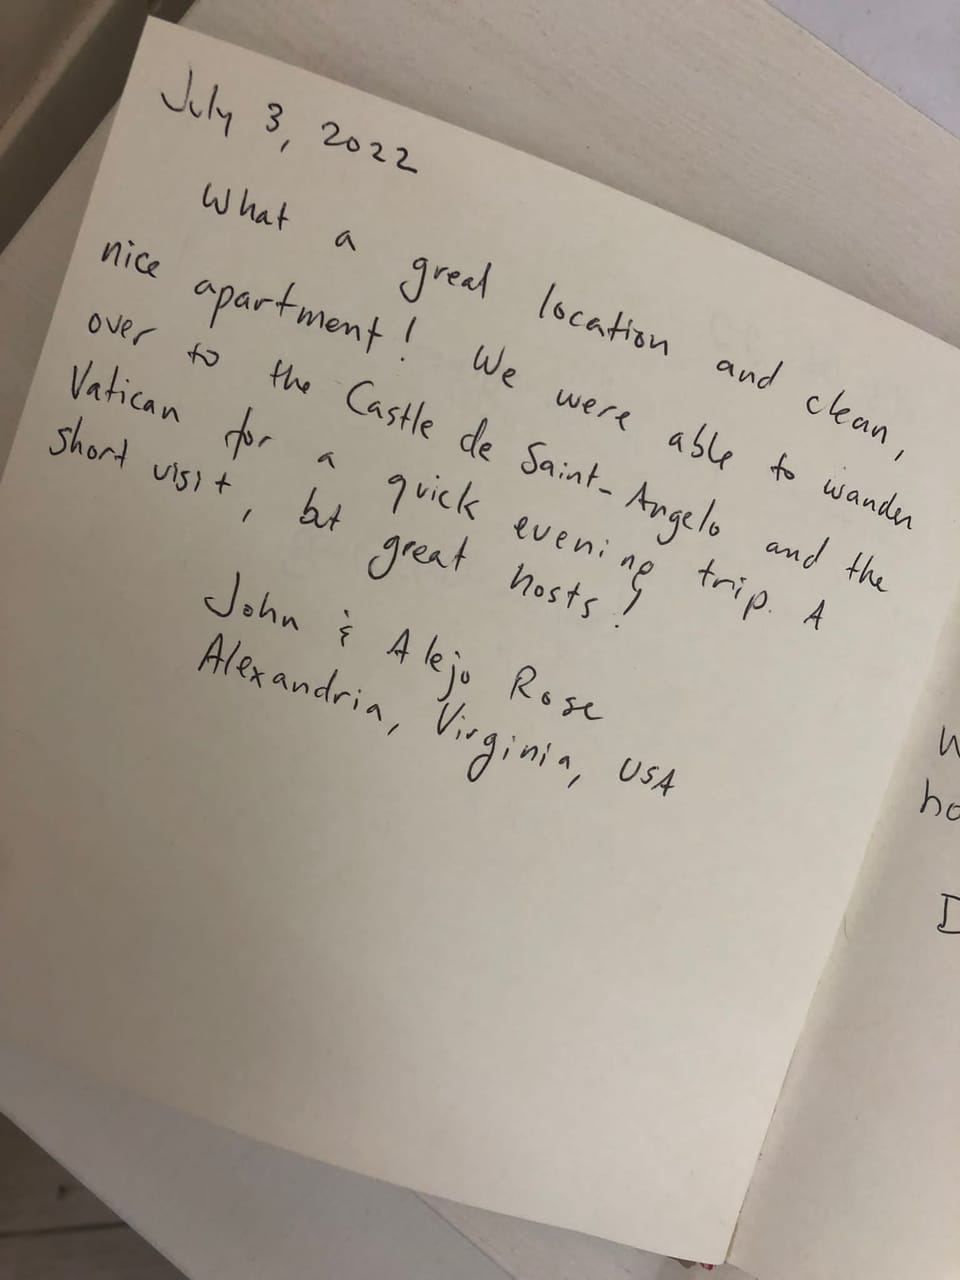 July 3, 2022
What a great location and clean,
nice apartment! We were able to wander
over to the Castle de Saint-Angelo and the
Vatican for a quick evening trip. A
short visit, but great hosts!
John & Alejo Rose
Alexandria, Virginia, USA